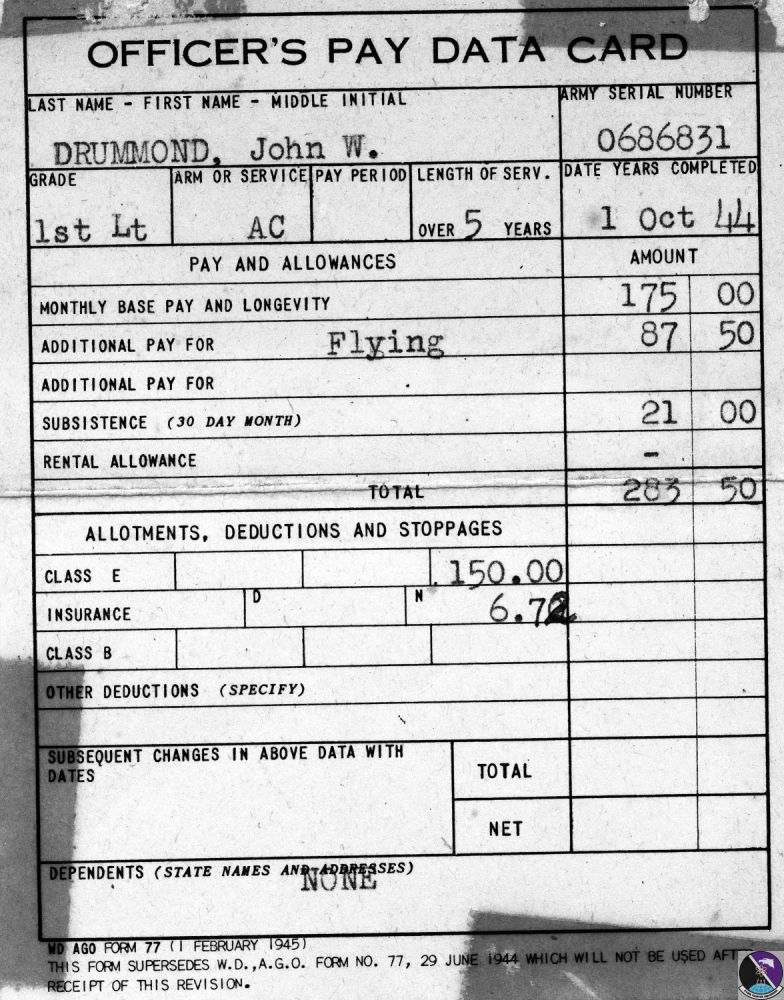 OFFICER'S PAY DATA CARD
LAST NAME - FIRST NAME - MIDDLE INITIAL
ARMY SERIAL NUMBER
DRUMMOND, John W.
0686831
GRADE
ARM OR SERVICE
PAY PERIOD
LENGTH OF SERV.
DATE YEARS COMPLETED
1st Lt
AC
OVER 5 YEARS
1 Oct 44
PAY AND ALLOWANCES
AMOUNT
MONTHLY BASE PAY AND LONGEVITY
175 00
ADDITIONAL PAY FOR Flying
87 50
ADDITIONAL PAY FOR
SUBSISTENCE (30 DAY MONTH)
21 00
RENTAL ALLOWANCE
-
TOTAL
283 50
ALLOTMENTS, DEDUCTIONS AND STOPPAGES
CLASS E
150.00
INSURANCE
D
N
6.72
CLASS B
OTHER DEDUCTIONS (SPECIFY)
SUBSEQUENT CHANGES IN ABOVE DATA WITH
DATES
TOTAL
NET
DEPENDENTS (STATE NAMES AND ADDRESSES)
NONE
WD AGO FORM 77 (1 FEBRUARY 1945)
THIS FORM SUPERSEDES W.D.,A.G.O. FORM NO. 77, 29 JUNE 1944 WHICH WILL NOT BE USED
RECEIPT OF THIS REVISION.